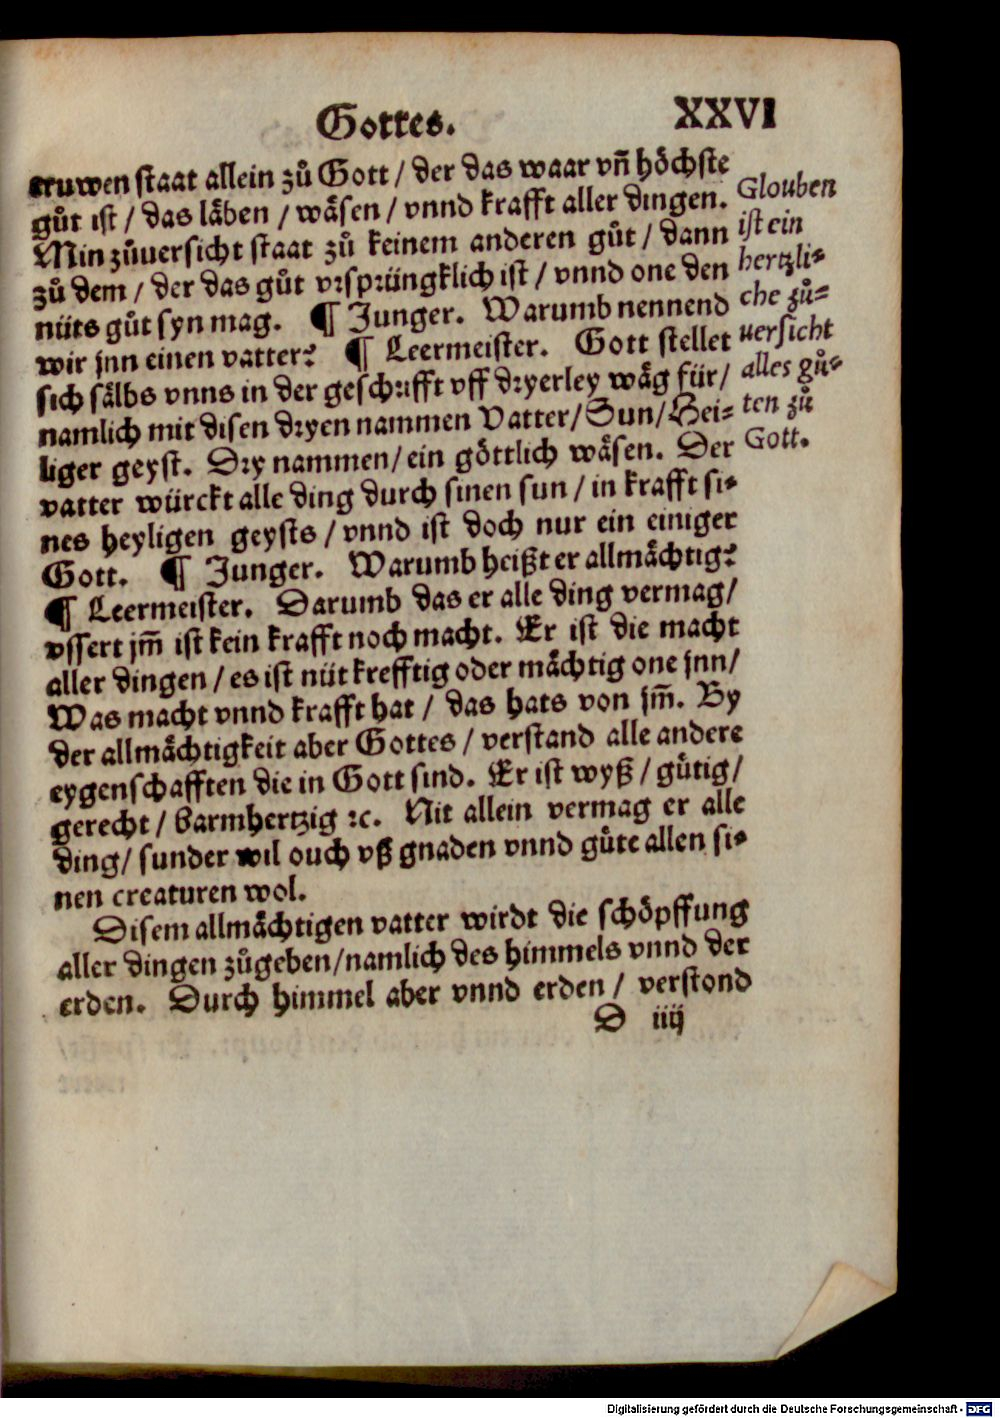 Gottes. XXVI
truwen staat allein zuͦ Gott / der das waar vñ höchste
guͦt ist / das läben / wäsen / vnnd krafft aller dingen.
Min zuͦuersicht staat zuͦ keinem anderen guͦt / dann
zuͦ dem / der das guͦt vrsprüngklich ist / vnnd one den
nüts guͦt syn mag. ¶ Junger. Warumb nennend
wir jnn einen vatter? ¶ Leermeister. Gott stellet
sich sälbs vnns in der geschrifft vff dryerley wäg für /
namlich mit disen dryen nammen Vatter / Sun / Hei-
liger geyst. Dry nammen / ein göttlich wäsen. Der
vatter würckt alle ding durch sinen sun / in krafft si-
nes heyligen geysts / vnnd ist doch nur ein einiger
Gott. ¶ Junger. Warumb heißt er allmächtig?
¶ Leermeister. Darumb das er alle ding vermag /
vssert jm̃ ist kein krafft noch macht. Er ist die macht
aller dingen / es ist nüt krefftig oder mächtig one jnn /
Was macht vnnd krafft hat / das hats von jm̃. By
der allmächtigkeit aber Gottes / verstand alle andere
eygenschafften die in Gott sind. Er ist wyß / guͤtig /
gerecht / barmhertzig ꝛc. Nit allein vermag er alle
ding / sunder wil ouch vß gnaden vnnd guͤte allen si-
nen creaturen wol.
Disem allmächtigen vatter wirdt die schöpffung
aller dingen zuͦgeben / namlich des himmels vnnd der
erden. Durch himmel aber vnnd erden / verstond
D iiij
Glouben
ist ein
hertzli-
che zuͦ-
uersicht
alles guͦ-
ten zuͦ
Gott.
Digitalisierung gefördert durch die Deutsche Forschungsgemeinschaft - DFG